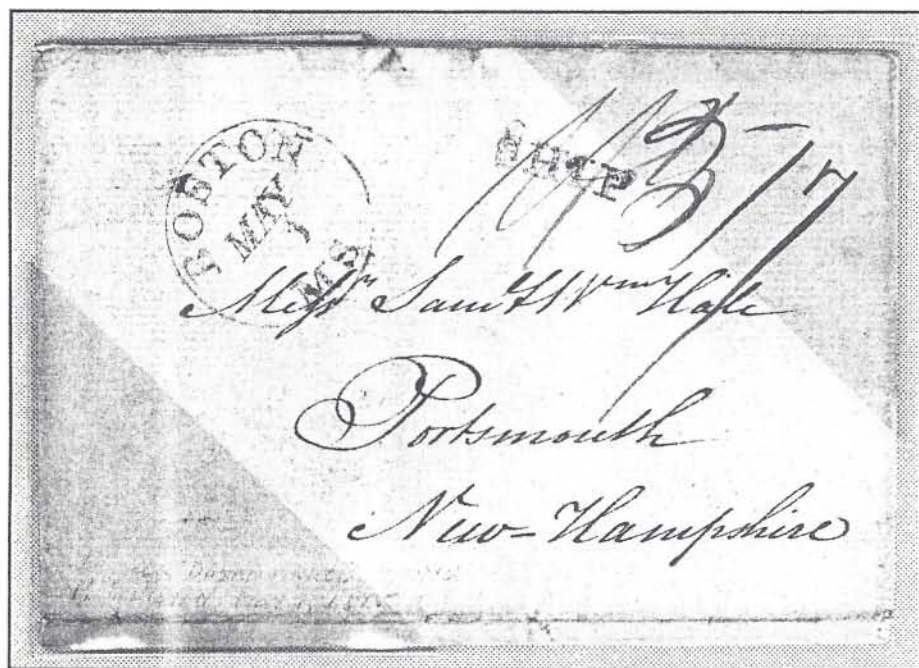 BOSTON
MAY
MS
SHIP
17
Mess.rs Sam.l & W.m Hale
Portsmouth
New-Hampshire